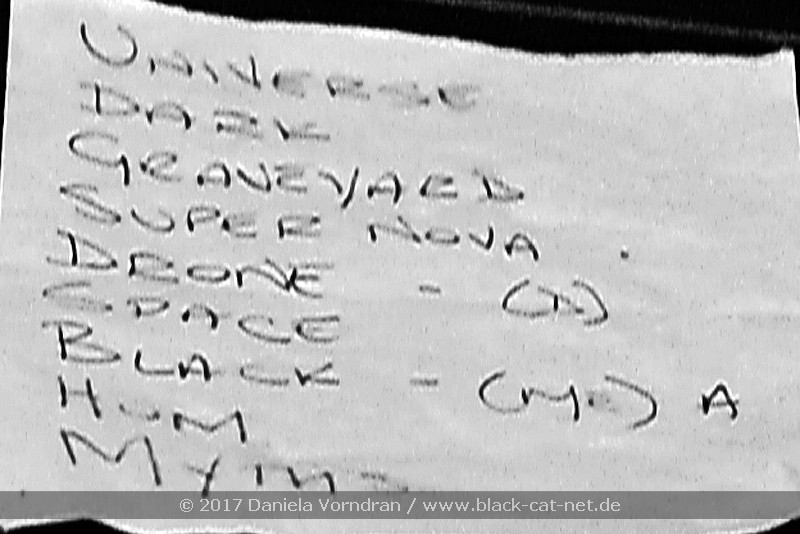 UNIVERSE
DARK
GRAVEYARD
SUPER NOVA
DRONE - (D)
SPACE
BLACK - A
HUM
© 2017 Daniela Vorndran / www.black-cat-net.de